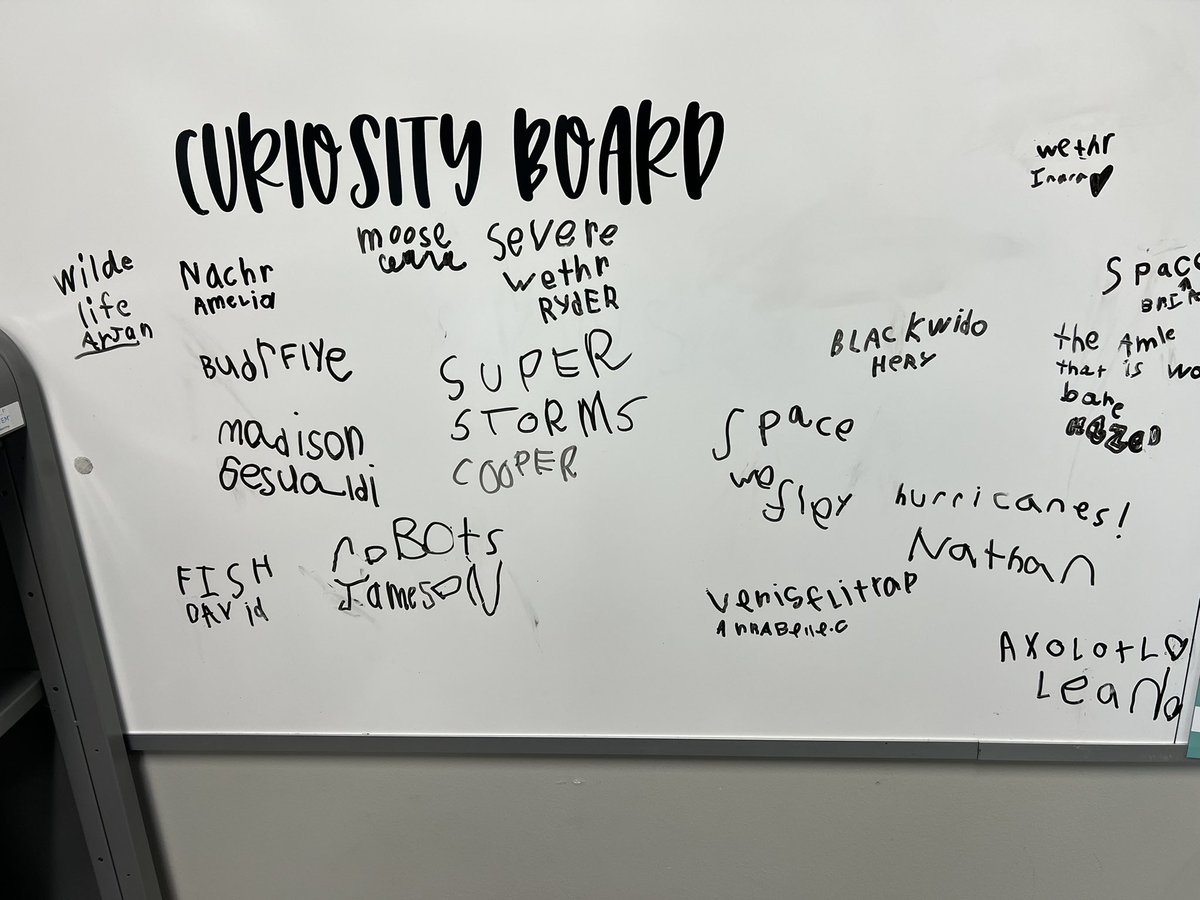 CURIOSITY BOARD
wethr
Inara
moose
severe
wethr
RYdER
wilde
life
Arjan
Nachr
Amelia
Space
BLACKwido
HeRy
the Amle
that is wo
bane
BudrFlye
SUPER
STORMS
COOPER
madison
Gesualdi
Space
we
fley
hurricanes!
Nathan
roBOts
JamesoN
FISH
DAVid
venisflitrap
AnnABelle.C
AxoLotL
LeaNa